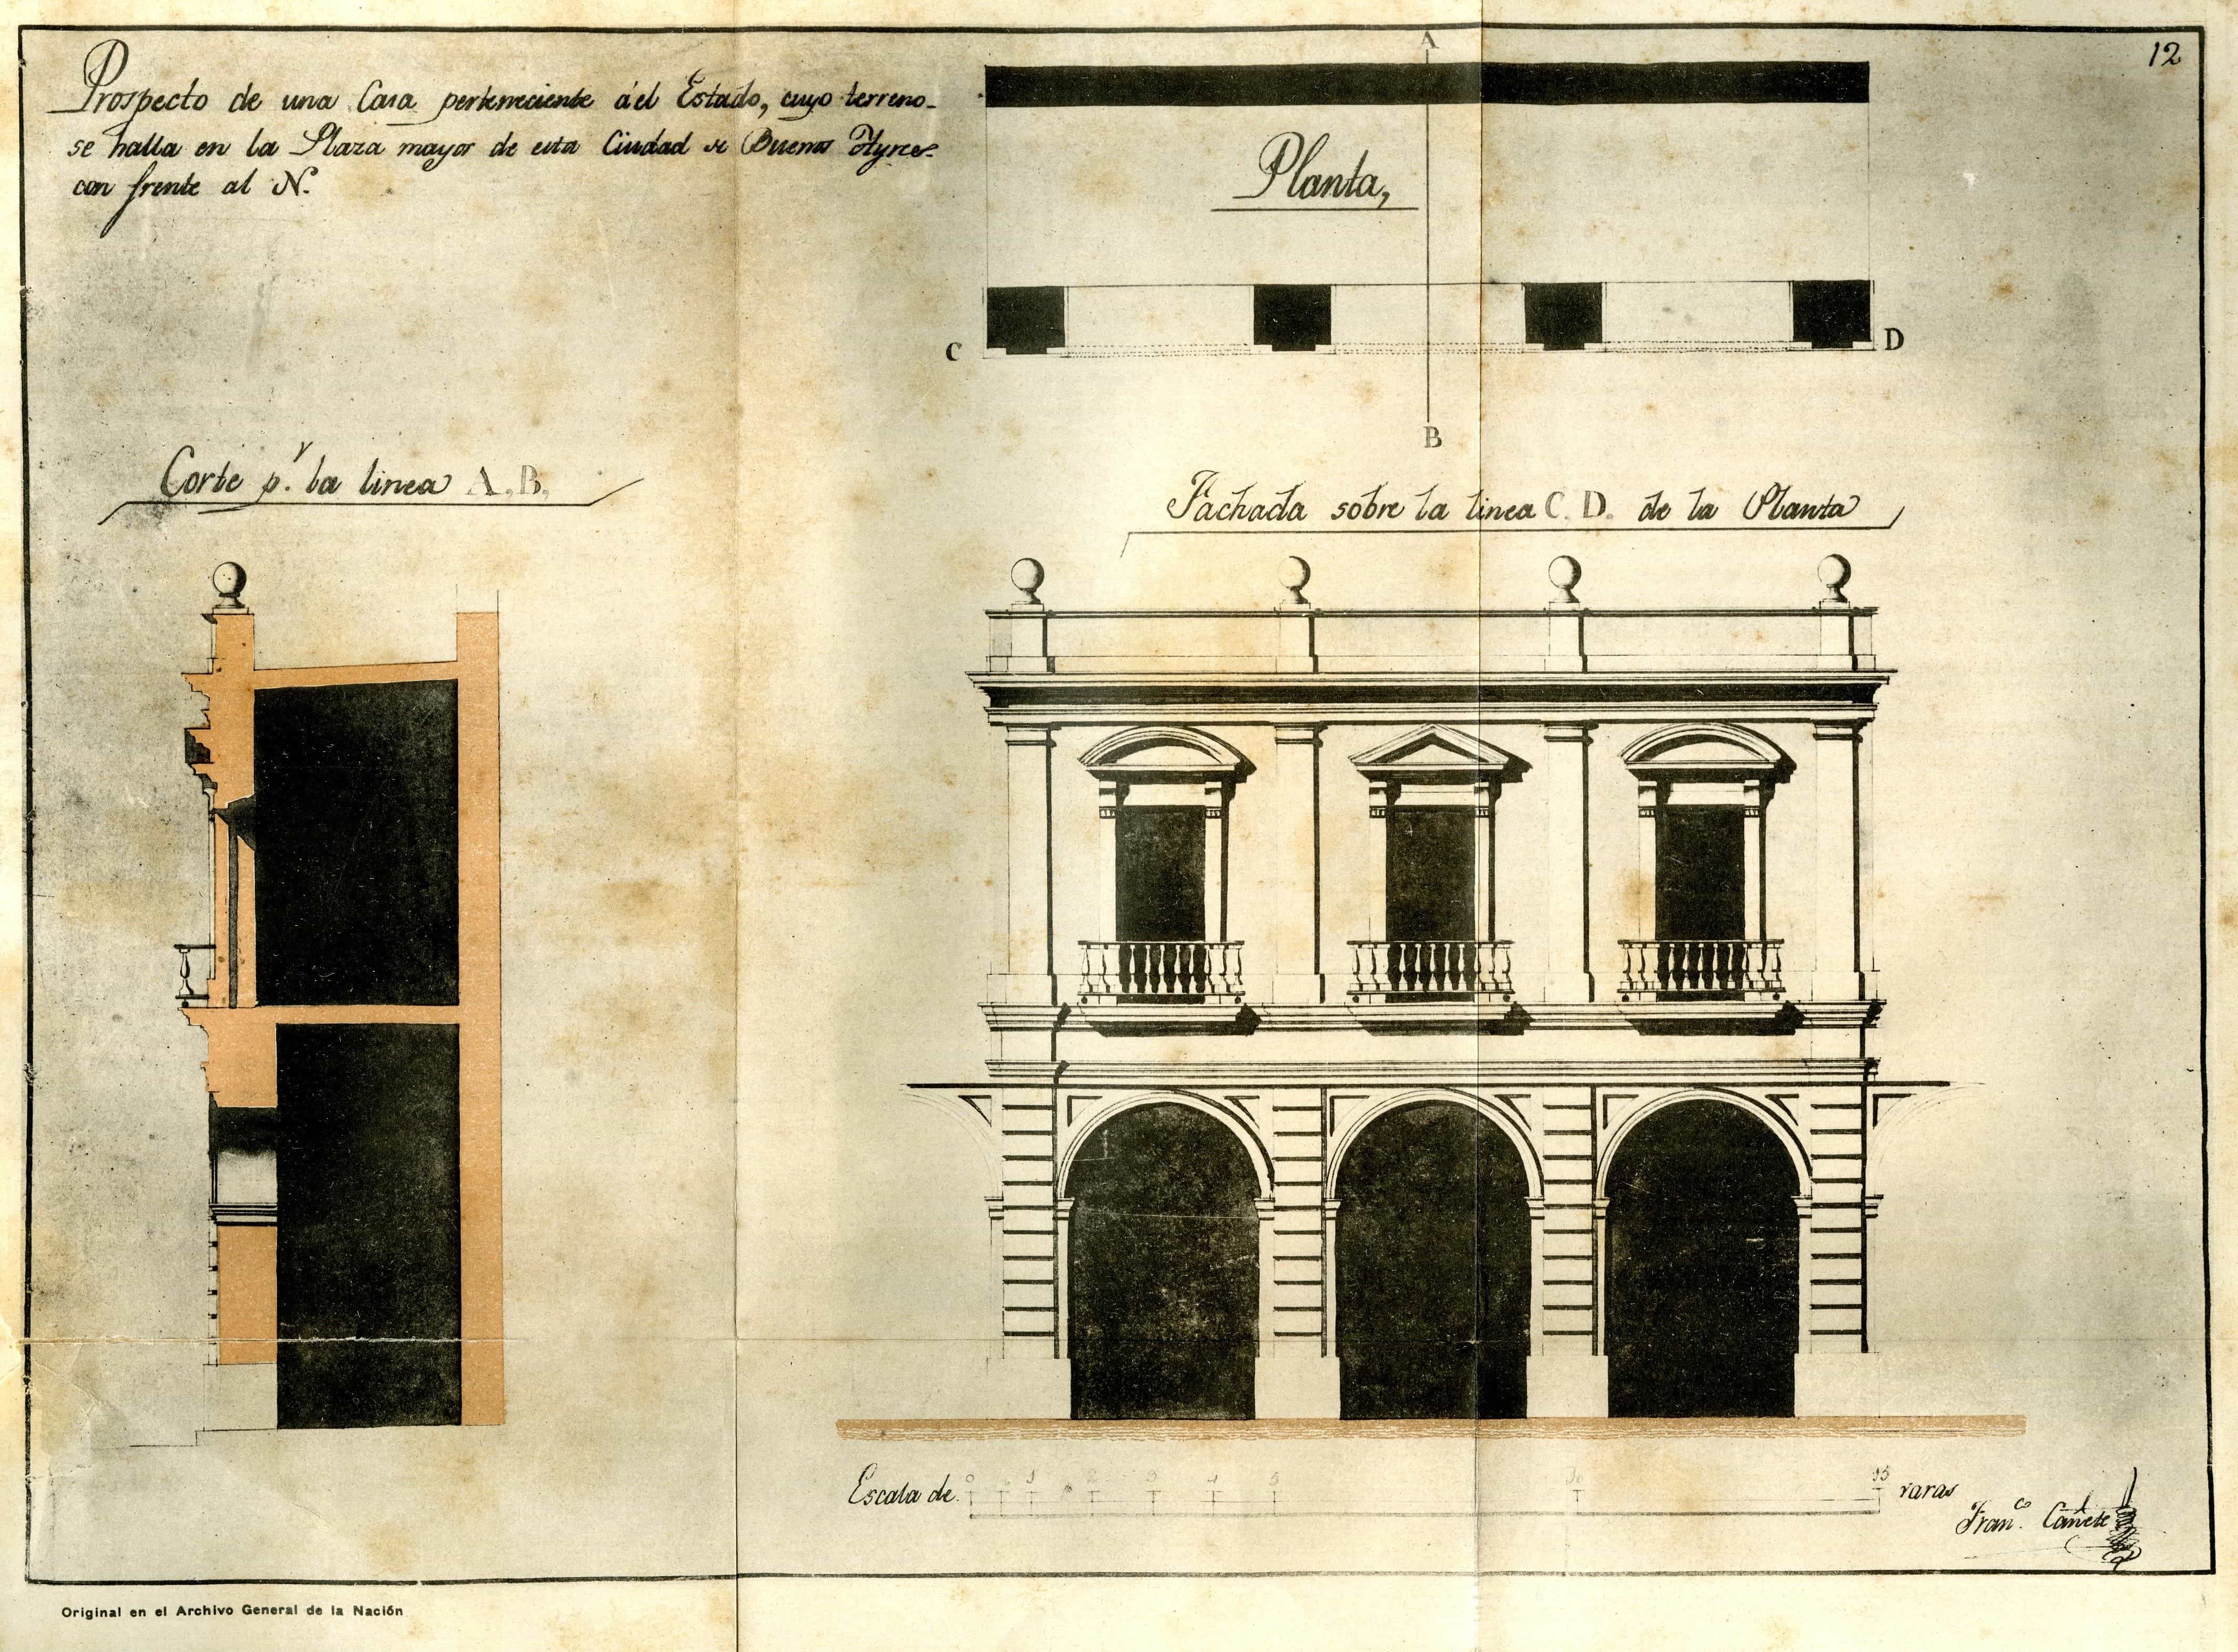 Prospecto de una Casa perteneciente áel Estado, cuyo terreno
se halla en la Plaza mayor de esta Ciudad de Buenos Ayres
con frente al N.
12
A
Planta,
C
D
B
Corte p.r la linea A,B,
Fachada sobre la linea C. D. de la Planta
Escala de 0 1 2 3 4 5 10 15 varas
Fran.co Cañete
Original en el Archivo General de la Nación